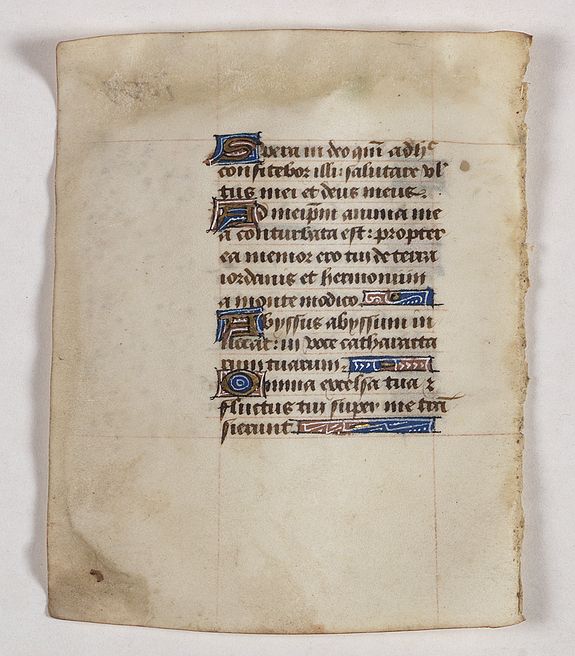 Spera in deo qm̄ adhᶜ
confitebor illi: salutare vl
tus mei et deus meus.
Ad meip̄m anima me
a conturbata est: propter
ea memor ero tui de terra
iordanis et hermonium
a monte modico.
Abyssus abyssum in
uocat: in voce catharacta
rum tuarum.
Omnia excelsa tua ⁊
fluctus tui super me trā
sierunt.